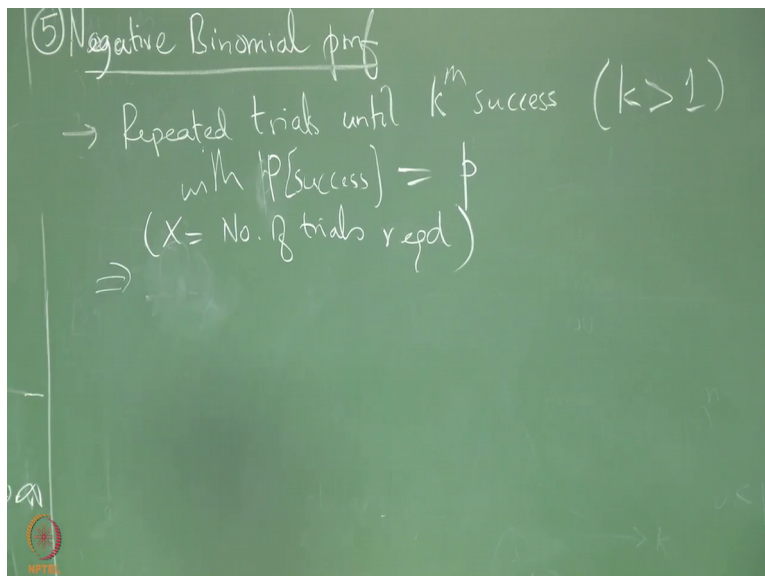 ⑤ Negative Binomial pmf
→ Repeated trials until kᵗʰ success (k > 1)
with P[success] = p
(X = No. of trials reqd)
⇒
→ k
NPTEL